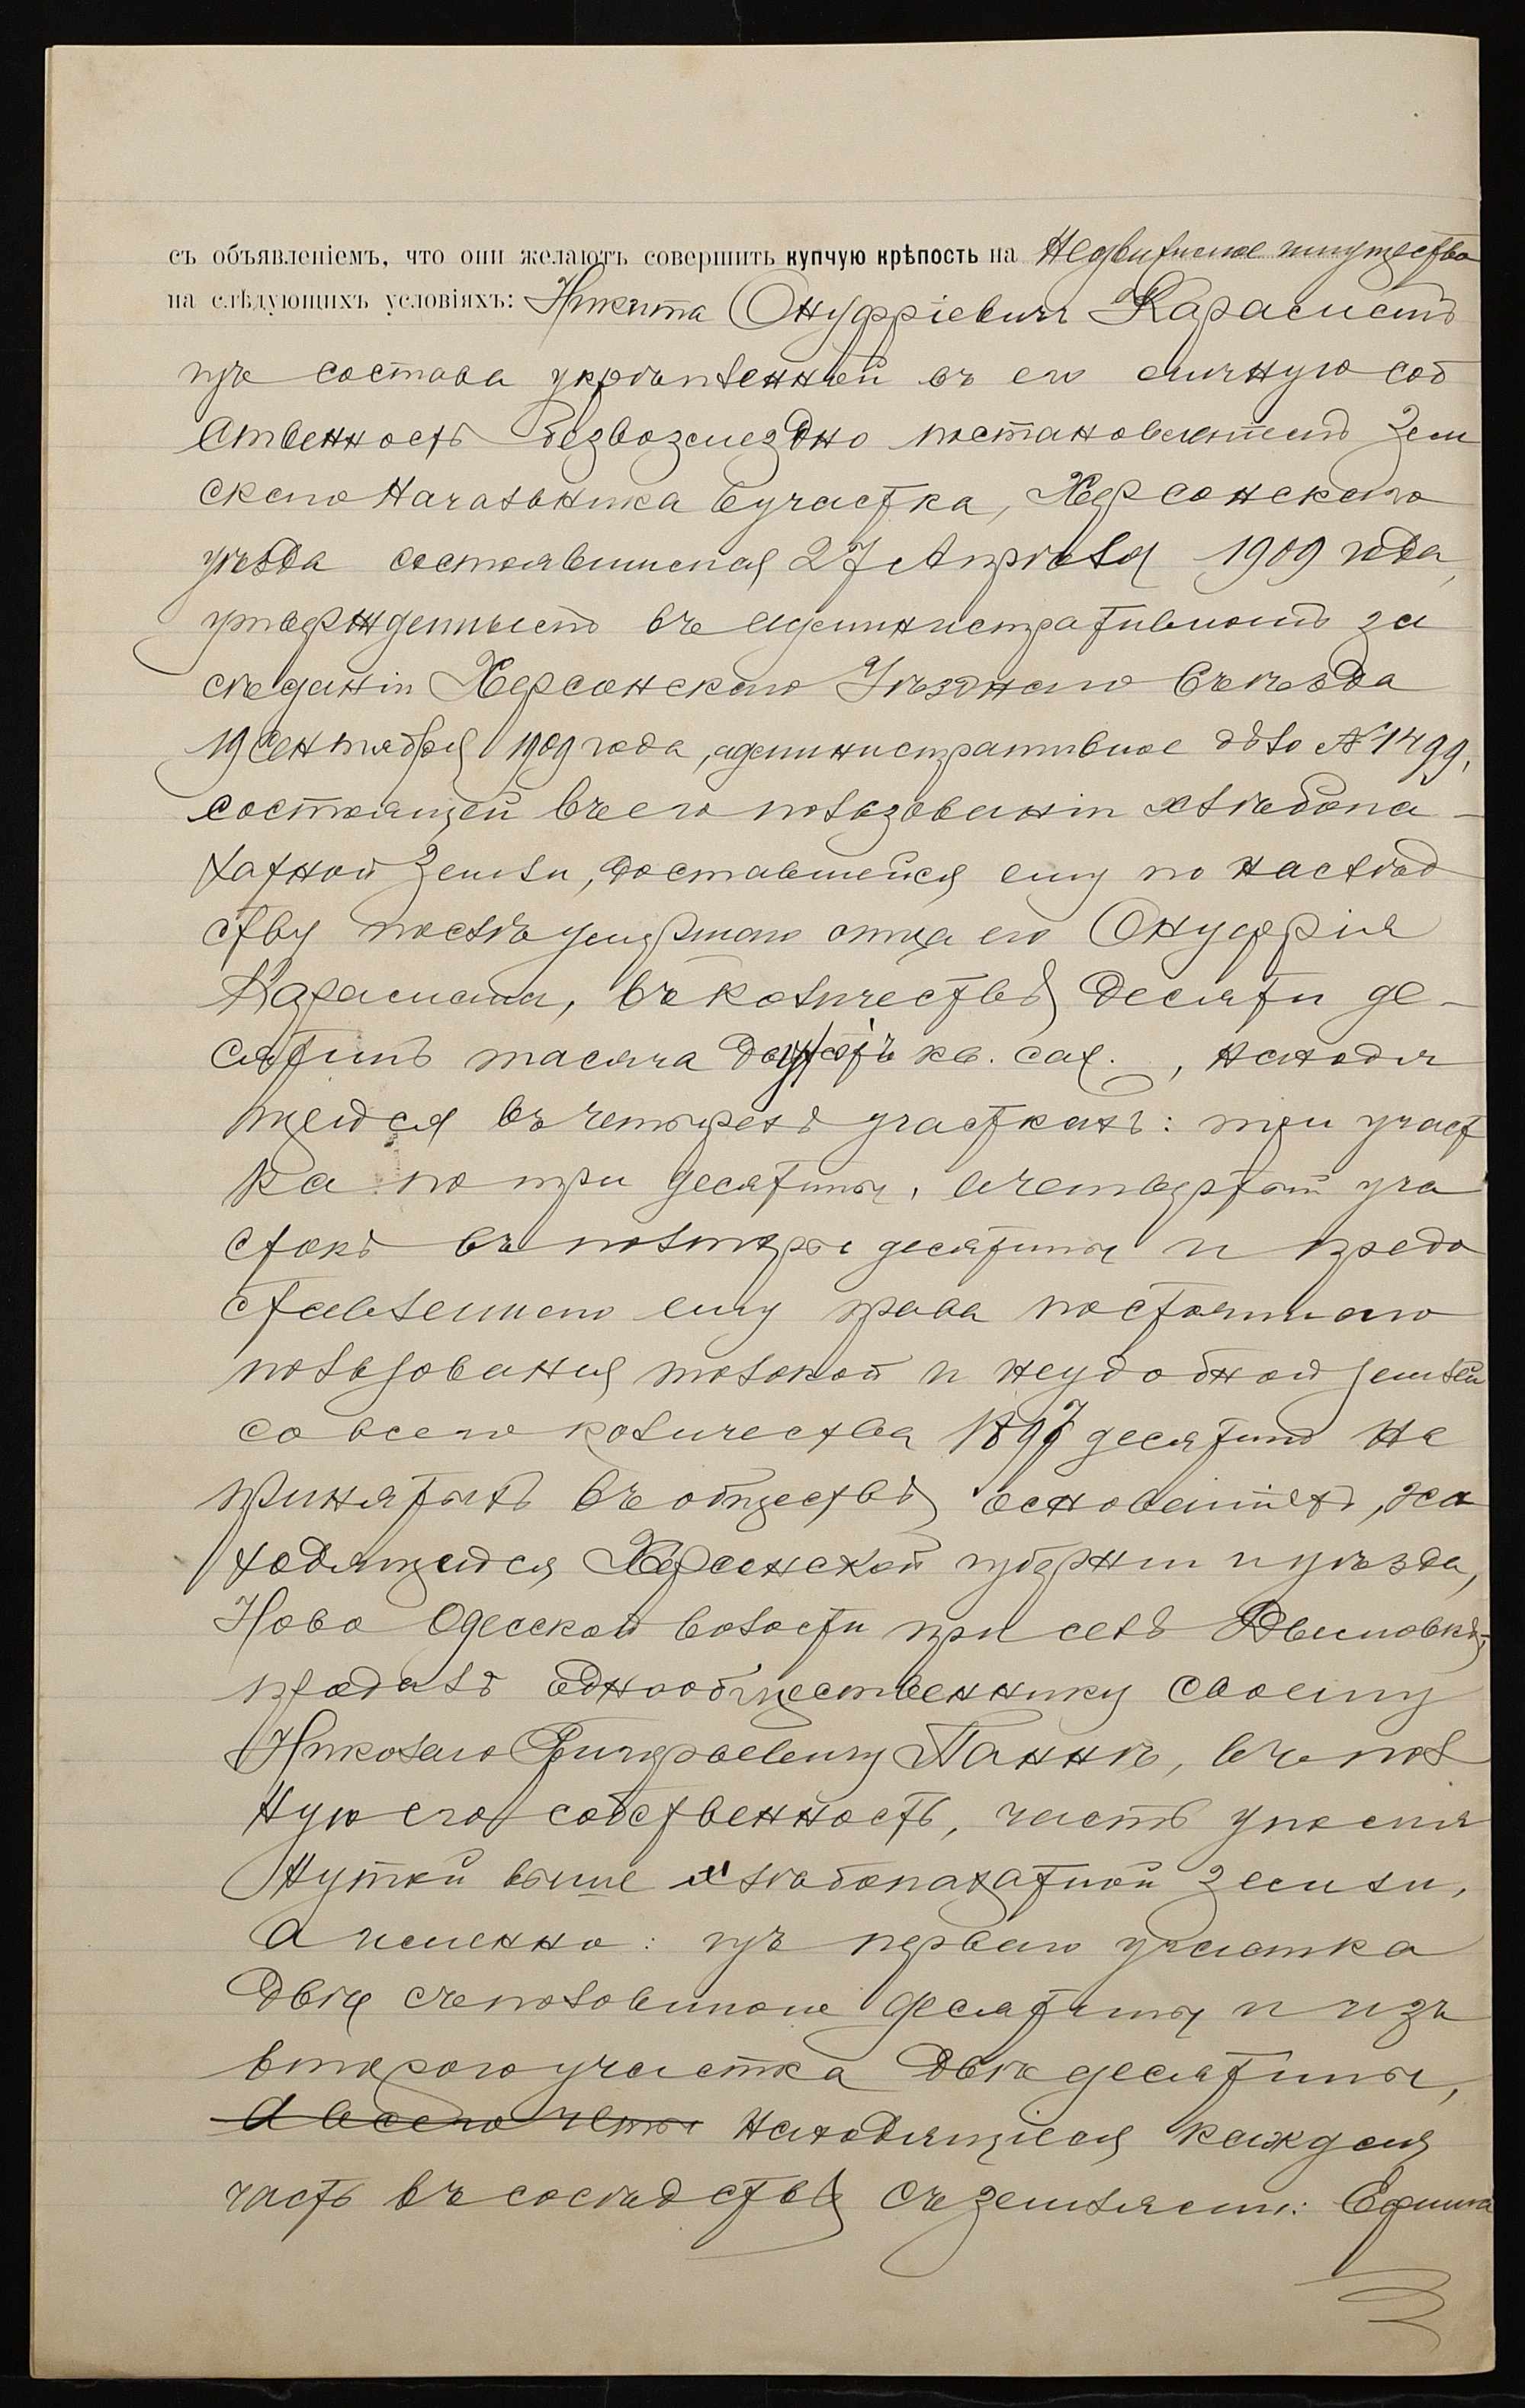 съ объявленіемъ, что они желаютъ совершить купчую крѣпость на недвижимое имущество
на слѣдующихъ условіяхъ: Никита Онуфріевичъ Карасистъ
изъ состава укрѣпленной въ его личную соб
ственность безвозмездно постановленіемъ Зем
скаго Начальника 6 участка, Херсонскаго
уѣзда состоявшимся 27 Апрѣля 1909 года,
утвержденнымъ въ административномъ за
сѣданіи Херсонскаго Уѣзднаго Съѣзда
19 Сентября 1909 года, административное дѣло №1499,
состоящей въ его пользованіи хлѣбопа-
хатной земли, доставшейся ему по наслѣд
ству послѣ умершаго отца его Онуфрія
въ количествѣ десяти де-
сятинъ тысяча двухсотъ кв. саж., находя
щейся въ четырехъ участкахъ: три участ
ка по три десятины, а четвертый уча
стокъ въ полторы десятины и предо
ставленнаго ему права постояннаго
пользованія толокой и неудобной землей
со всего количества 1897 десятинъ на
принятыхъ въ обществѣ основаніяхъ, на
ходящейся Херсонской губерніи и уѣзда,
Ново Одесской волости при селѣ
продалъ однообщественнику своему
Николаю Панкѣ, въ пол
ную его собственность, часть упомя
нутой выше хлѣбопахатной земли,
а именно: изъ перваго участка
двѣ съ половиною десятины и изъ
второго участка двѣ десятины,
а всего четы находящіеся каждая
часть въ сосѣдствѣ съ землями: Ефима